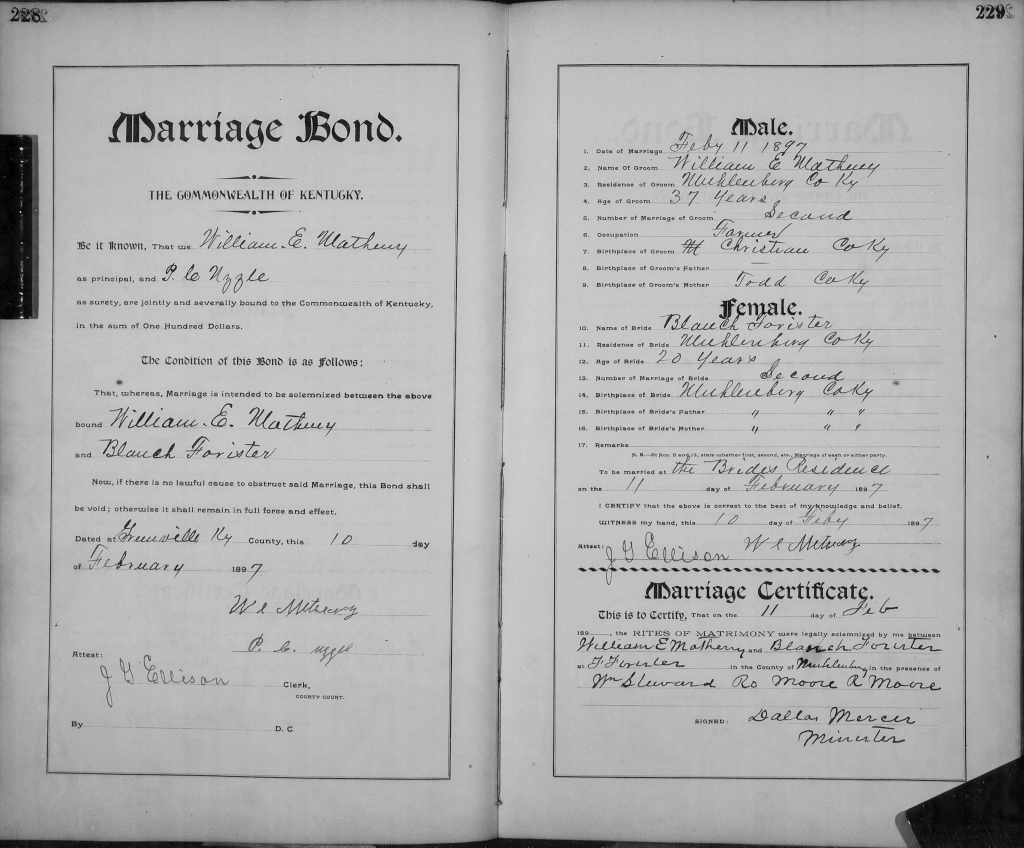 228
Marriage Bond.
THE COMMONWEALTH OF KENTUCKY.
Be it Known, That we William. E. Matheny
as principal, and P. C Uzzle
as surety, are jointly and severally bound to the Commonwealth of Kentucky,
in the sum of One Hundred Dollars.
The Condition of this Bond is as Follows:
That, whereas, Marriage is intended to be solemnized between the above
bound William. E. Matheny
and Blanch Forister
Now, if there is no lawful cause to obstruct said Marriage, this Bond shall
be void; otherwise it shall remain in full force and effect.
Dated at Greenville Ky County, this 10 day
of February 1897
W E Metheny
P. C. Uzzle
Attest:
J G Ellison Clerk,
COUNTY COURT.
By D. C.
229
Male.
1. Date of Marriage Feby 11 1897
2. Name Of Groom William E Matheny
3. Residence of Groom Muhlenberg Co Ky
4. Age of Groom 37 Years
5. Number of Marriage of Groom Second
6. Occupation Farmer
7. Birthplace of Groom Christian Co Ky
8. Birthplace of Groom's Father —
9. Birthplace of Groom's Mother Todd Co Ky
Female.
10. Name of Bride Blanch Forister
11. Residence of Bride Muhlenberg Co Ky
12. Age of Bride 20 Years
13. Number of Marriage of Bride Second
14. Birthplace of Bride Muhlenberg Co Ky
15. Birthplace of Bride's Father " " "
16. Birthplace of Bride's Mother " " "
17. Remarks
N. B.—At Nos. 5 and 13, state whether first, second, etc., Marriage of each or either party.
To be married at the Brides Residence
on the 11 day of February 1897
I CERTIFY that the above is correct to the best of my knowledge and belief.
WITNESS my hand, this 10 day of Feby 1897
Attest: J G Ellison W E Metheny
Marriage Certificate.
This is to Certify, That on the 11 day of Feb
189 , the RITES OF MATRIMONY were legally solemnized by me between
William E Matherry and Blanch Forister
at F Forister in the County of Muhlenburg in the presence of
Wm Steward Ro Moore R Moore
SIGNED: Dallas Mercer
Minister